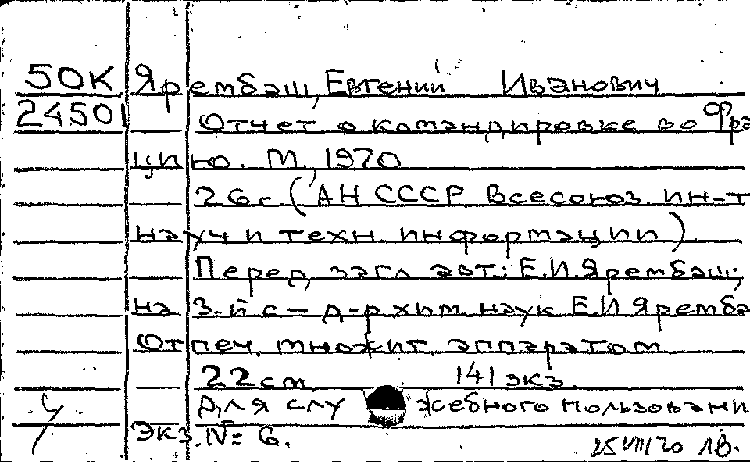 50К Ярембаш, Евгений Иванович
24501 Отчет о командировке во Фра
цию. М., 1970
26с (АН СССР Всесоюз. ин-т
науч и техн. информации).
Перед загл авт.: Е.И.Ярембаш,
на 3-й с - д-р хим. наук Е.И Яремба
Отпеч. множит. аппаратом
22см 141 экз.
Для слу жебного пользовани
Экз. №= 6.
25 VIII 70